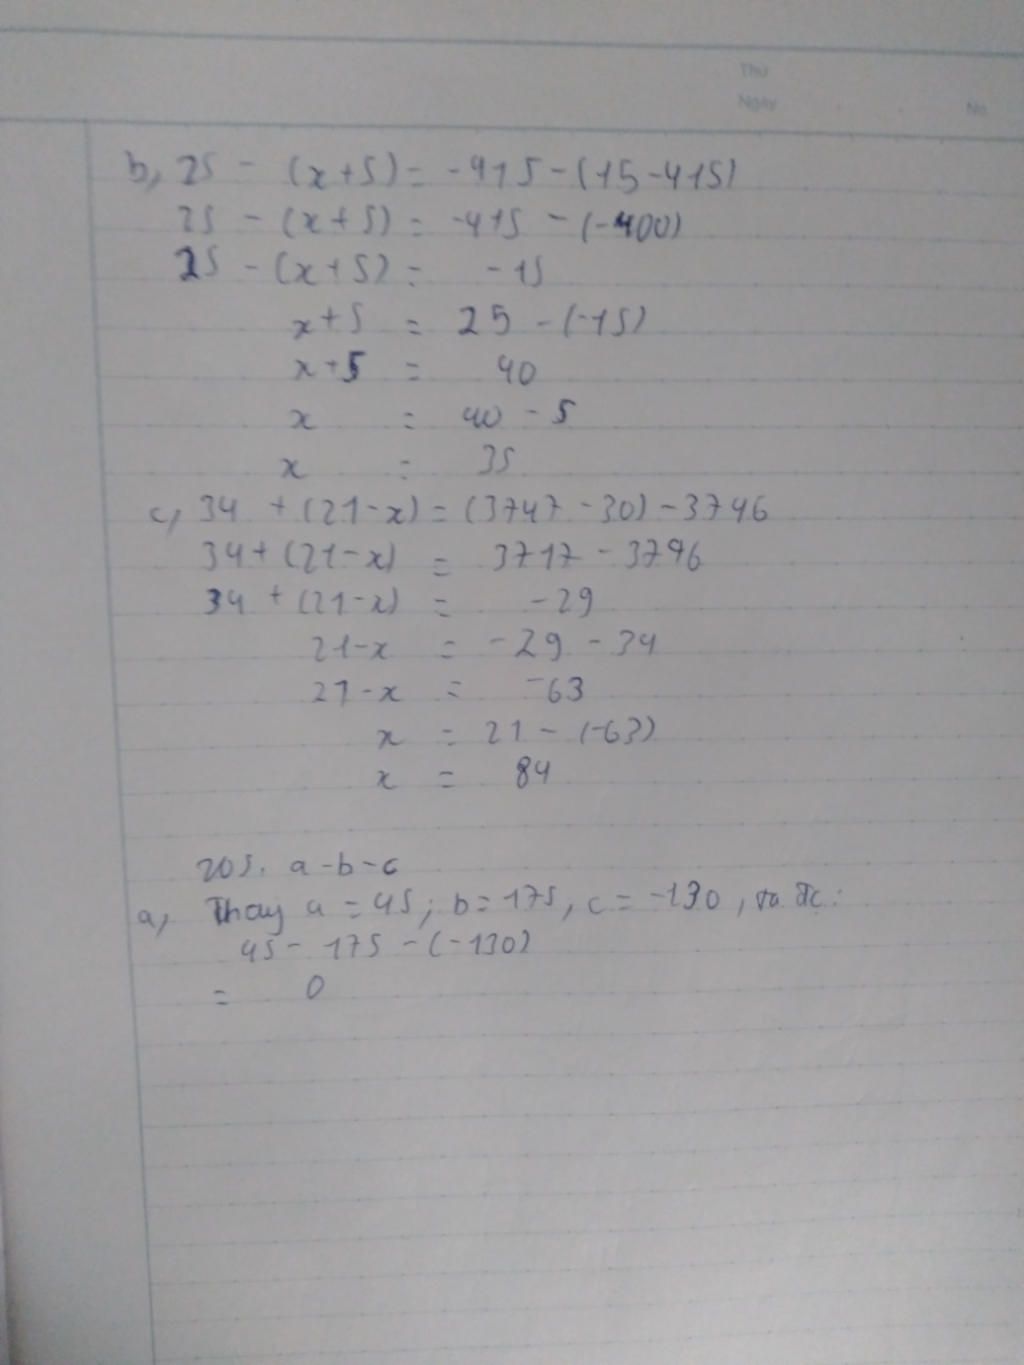 Thứ
Ngày No.
b, 25 - (x+5) = -415 - (15-415)
25 - (x+5) = -415 - (-400)
25 - (x+5) = -15
x+5 = 25 - (-15)
x+5 = 40
x = 40 - 5
x = 35
c, 34 + (21-x) = (3747 - 30) - 3746
34 + (21-x) = 3717 - 3746
34 + (21-x) = -29
21-x = -29 - 34
21-x = -63
x = 21 - (-63)
x = 84
205. a-b-c
a, Thay a = 45; b = 175, c = -130, ta đc:
45 - 175 - (-130)
= 0